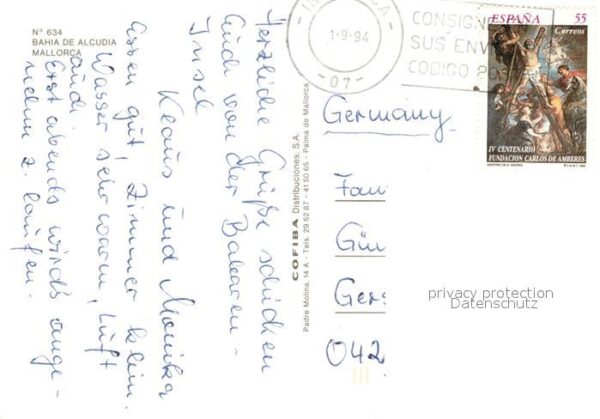 Nº 634
BAHIA DE ALCUDIA
MALLORCA
Herzliche Grüße schicken
Euch von der Balearen-
Insel
Klaus und Monika
Essen gut, Zimmer klein.
Wasser sehr warm, Luft
auch.
Erst abends wird's ange-
nehm z. laufen.
COFIBA Distribuciones, S.A.
Padre Molina, 14 A - Tels. 29 52 87 - 41 50 65 - Palma de Mallorca
1-9-94
-07-
CONSIGNE
SUS ENV
CODIGO PO
ESPAÑA 55
Correos
IV CENTENARIO
FUNDACION CARLOS DE AMBERES
Germany
Fam
Gün
Gers
042
privacy protection
Datenschutz